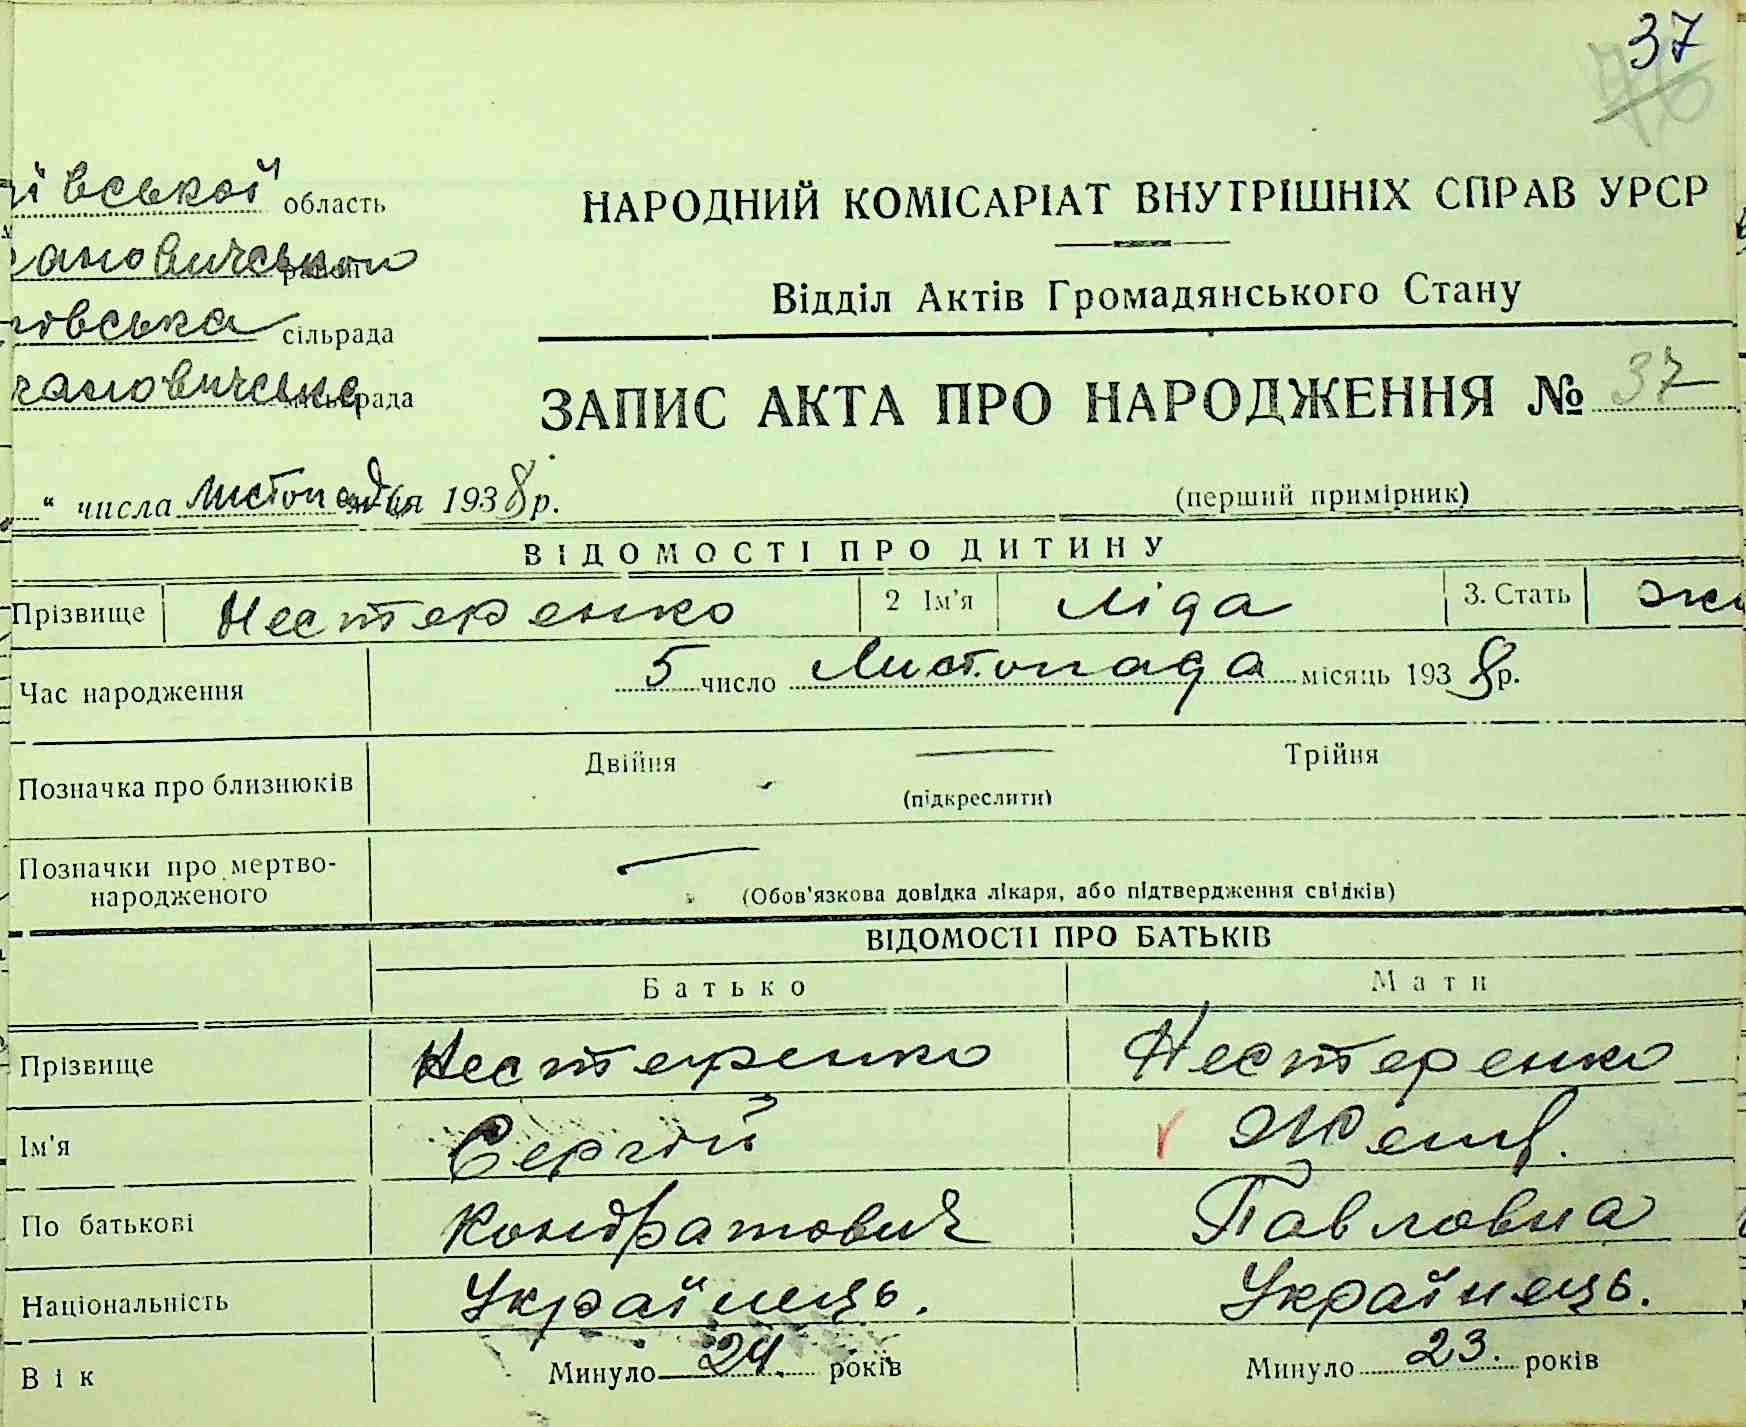 37
76
ївської область
ановичськ
овська сільрада
ановичське рада
НАРОДНИЙ КОМІСАРІАТ ВНУТРІШНІХ СПРАВ УРСР
Відділ Актів Громадянського Стану
ЗАПИС АКТА ПРО НАРОДЖЕННЯ № 37
" числа Листопада 1938 р.
(перший примірник)
ВІДОМОСТІ ПРО ДИТИНУ
Прізвище Нестеренко 2 Ім'я Ліда 3. Стать жі
Час народження 5 число Листопада місяць 1938 р.
Позначка про близнюків Двійня Трійня
(підкреслити)
Позначки про мертво-
народженого
(Обов'язкова довідка лікаря, або підтвердження свідків)
ВІДОМОСТІ ПРО БАТЬКІВ
Батько Мати
Прізвище Нестеренко Нестеренко
Ім'я Сергій Женя.
По батькові Кондратович Павловна
Національність Українець. Українець.
Вік Минуло 24. років Минуло 23. років